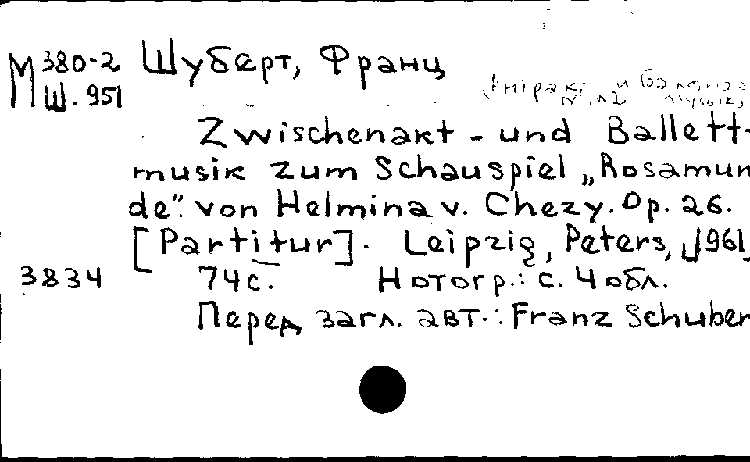 М 380-2 Шуберт, Франц
Ш. 951
(Антракт и
Zwischenakt - und Ballett-
musik zum Schauspiel „Rosamun
de". von Helmina v. Chezy. Op. 26.
[Partitur]. Leipzig, Peters, [1961]
3834 74с. Нотогр.: с. 4 обл.
Перед загл. авт.: Franz Schuber